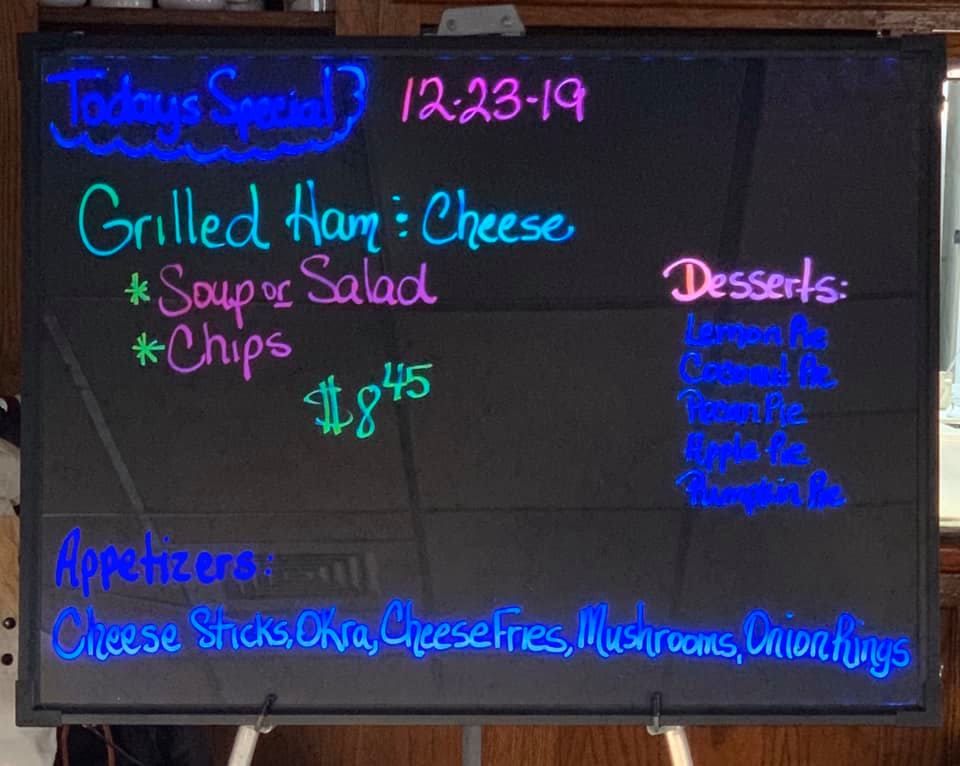 Todays Special
12-23-19
Grilled Ham & Cheese
* Soup or Salad
* Chips
$8 45
Desserts:
Lemon Pie
Coconut Pie
Pecan Pie
Apple Pie
Pumpkin Pie
Appetizers:
Cheese Sticks, Okra, Cheese Fries, Mushrooms, Onion Rings